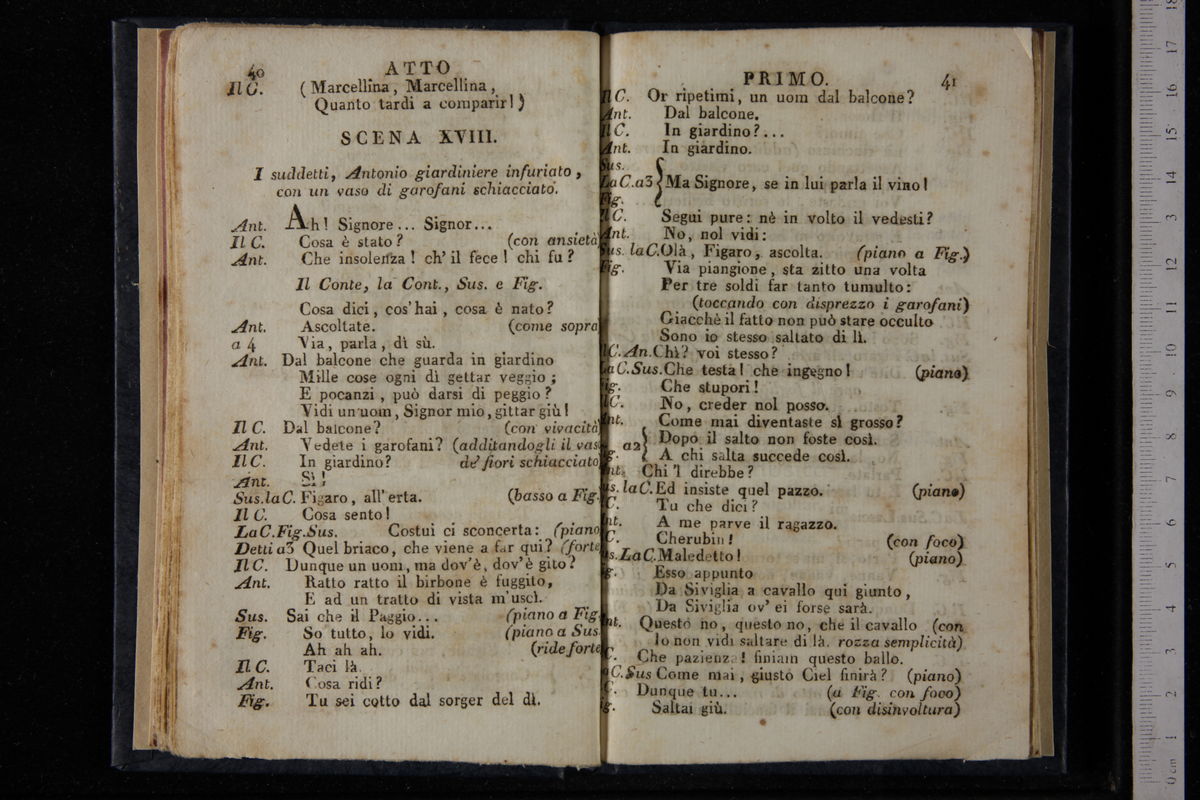 40 ATTO
Il C. (Marcellina, Marcellina,
Quanto tardi a comparir!)
SCENA XVIII.
I suddetti, Antonio giardiniere infuriato,
con un vaso di garofani schiacciato.
Ant. Ah! Signore... Signor...
Il C. Cosa è stato? (con ansietà
Ant. Che insolenza! ch' il fece! chi fu?
Il Conte, la Cont., Sus. e Fig.
Cosa dici, cos' hai, cosa è nato?
Ant. Ascoltate. (come sopra
a 4 Via, parla, dì sù.
Ant. Dal balcone che guarda in giardino
Mille cose ogni dì gettar veggio;
E pocanzi, può darsi di peggio?
Vidi un uom, Signor mio, gittar giù!
Il C. Dal balcone? (con vivacità
Ant. Vedete i garofani? (additandogli il vaso
Il C. In giardino? de' fiori schiacciato
Ant. Sì!
Sus. la C. Figaro, all' erta. (basso a Fig.
Il C. Cosa sento!
La C. Fig. Sus. Costui ci sconcerta: (piano
Detti a3 Quel briaco, che viene a far qui? (forte
Il C. Dunque un uom, ma dov'è, dov'è gito?
Ant. Ratto ratto il birbone è fuggito,
E ad un tratto di vista m'uscì.
Sus. Sai che il Paggio... (piano a Fig.
Fig. So tutto, lo vidi. (piano a Sus.
Ah ah ah. (ride forte
Il C. Taci là.
Ant. Cosa ridi?
Fig. Tu sei cotto dal sorger del dì.
PRIMO. 41
Il C. Or ripetimi, un uom dal balcone?
Ant. Dal balcone.
Il C. In giardino?...
Ant. In giardino.
Sus.
La C. a3 Ma Signore, se in lui parla il vino!
Fig.
Il C. Segui pure: nè in volto il vedesti?
Ant. No, nol vidi:
Sus. la C. Olà, Figaro, ascolta. (piano a Fig.)
Fig. Via piangione, sta zitto una volta
Per tre soldi far tanto tumulto:
(toccando con disprezzo i garofani)
Giacchè il fatto non può stare occulto
Sono io stesso saltato di lì.
Il C. An. Chì? voi stesso?
La C. Sus. Che testa! che ingegno! (piano)
Fig. Che stupori!
Il C. No, creder nol posso.
Ant. Come mai diventaste sì grosso?
a2 Dopo il salto non foste così.
Fig. A chi salta succede così.
Ant. Chi 'l direbbe?
Sus. la C. Ed insiste quel pazzo. (piano)
Il C. Tu che dici?
Ant. A me parve il ragazzo.
Il C. Cherubin! (con foco)
Sus. La C. Maledetto! (piano)
Fig. Esso appunto
Da Siviglia a cavallo qui giunto,
Da Siviglia ov' ei forse sarà.
Ant. Questo no, questo no, che il cavallo (con
Io non vidi saltare di là. rozza semplicità)
Il C. Che pazienza! finiam questo ballo.
la C. Sus Come mai, giusto Ciel finirà? (piano)
Il C. Dunque tu... (a Fig. con foco)
Fig. Saltai giù. (con disinvoltura)
0 cm 1 2 3 4 5 6 7 8 9 10 11 12 13 14 15 16 17 18